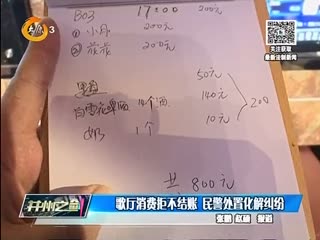 803 17:00 200元
① 小月 200元
② 200元
50元
果盘
白雪花啤酒 14个酒 140元 200
1个 10元
共 800元
3
关注获取
最新法制新闻
并州之盾
歌厅消费拒不结账 民警处置化解纠纷
张鹏 赵硕 报道